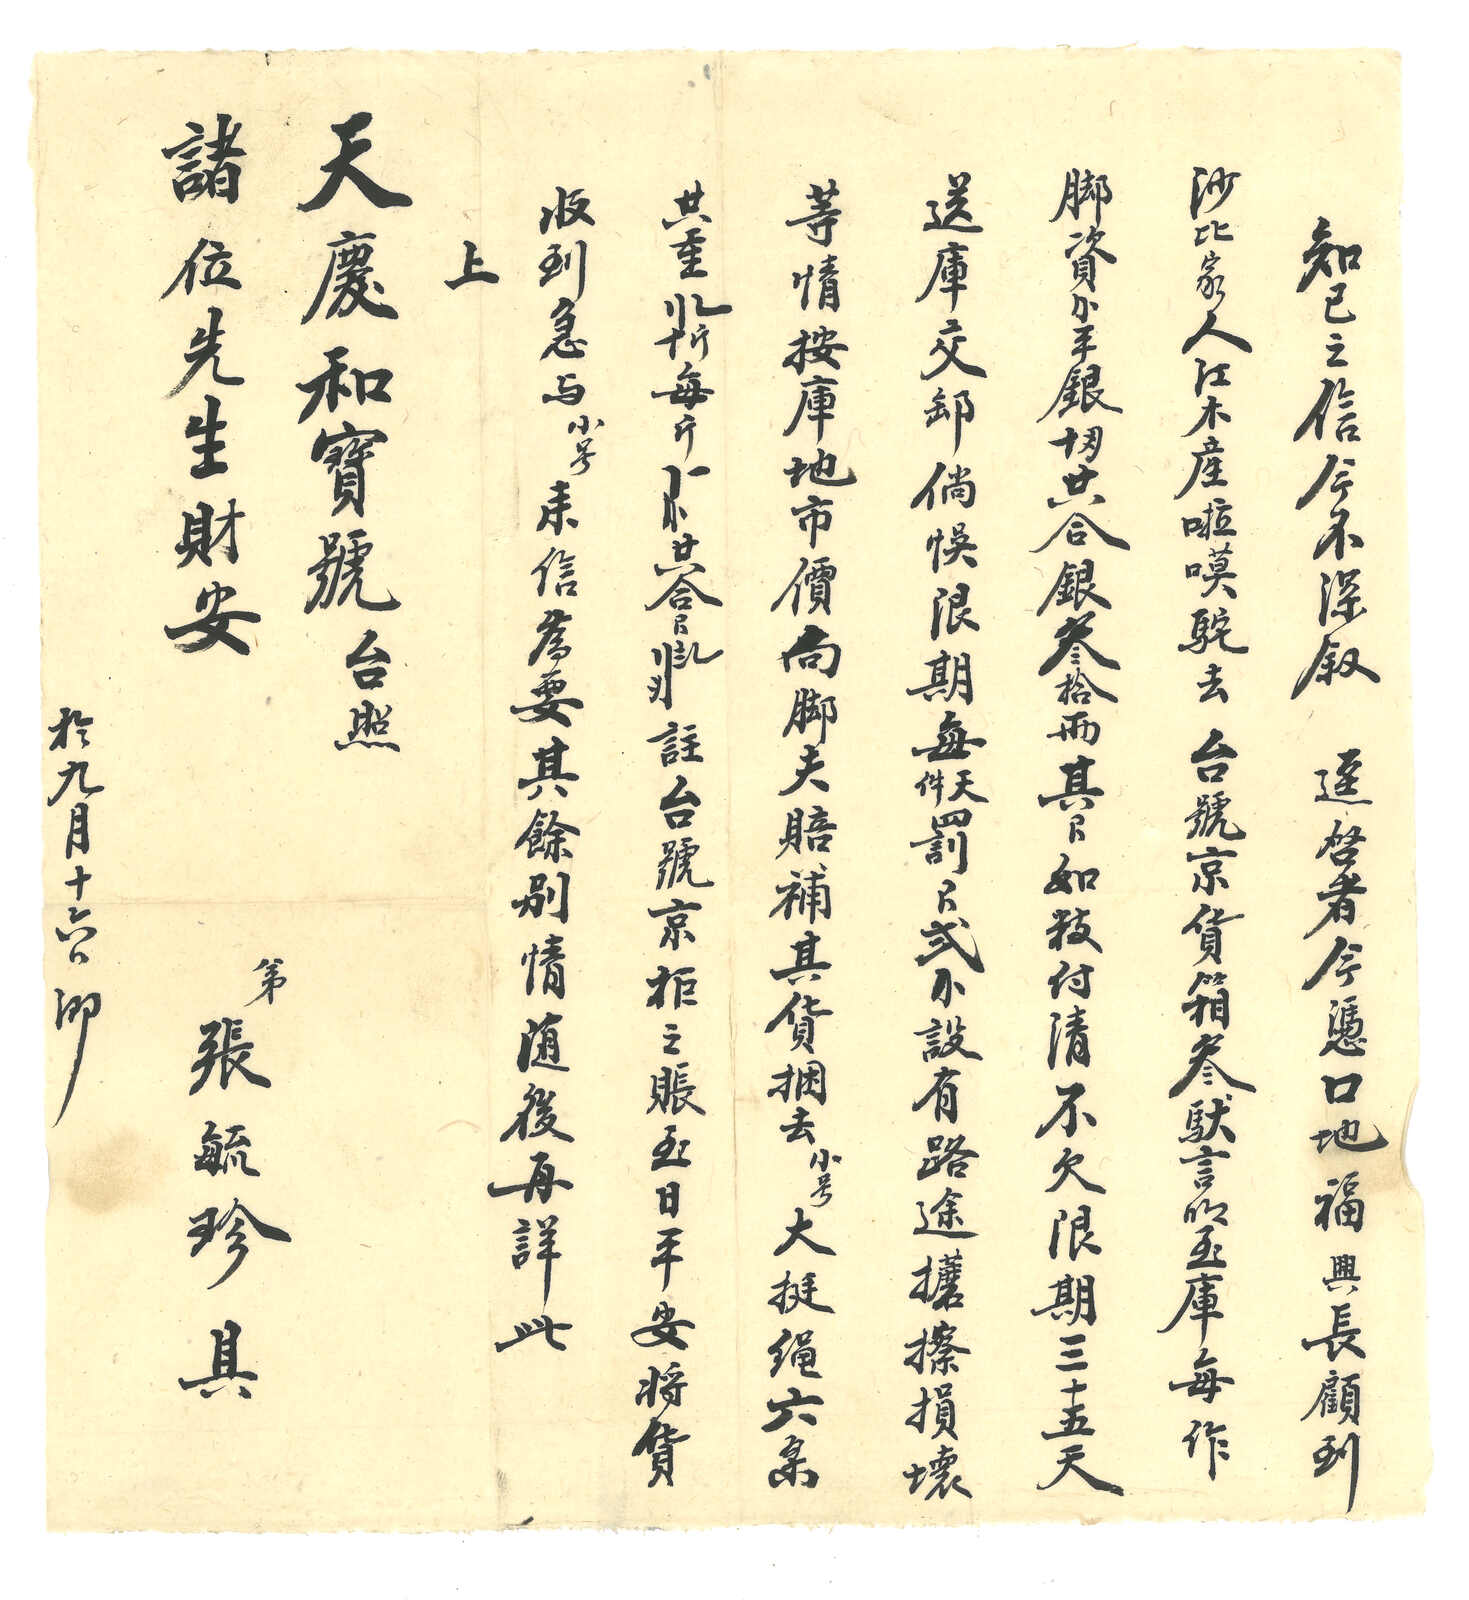 知己之信今不深叙 逕啓者今憑口地福興長顧到
沙比家人江木産啦嘆駝去 台號京貨箱叁馱言明至庫每作
脚資 平銀 共合銀叁拾兩其 如数付清不欠限期三十五天
送庫交卸倘悞限期每天件罰 弍 設有路途擄擦損壞
等情按庫地市價向脚夫賠補其貨捆去小号大挺绳六条
共重 斤每斤 共合 註台號京柜之賬至日平安將貨
收到急与小号来信為要其餘别情随後再詳此
上
天慶和寶號台照
諸位先生財安
弟張毓珍具
於九月十六日冲